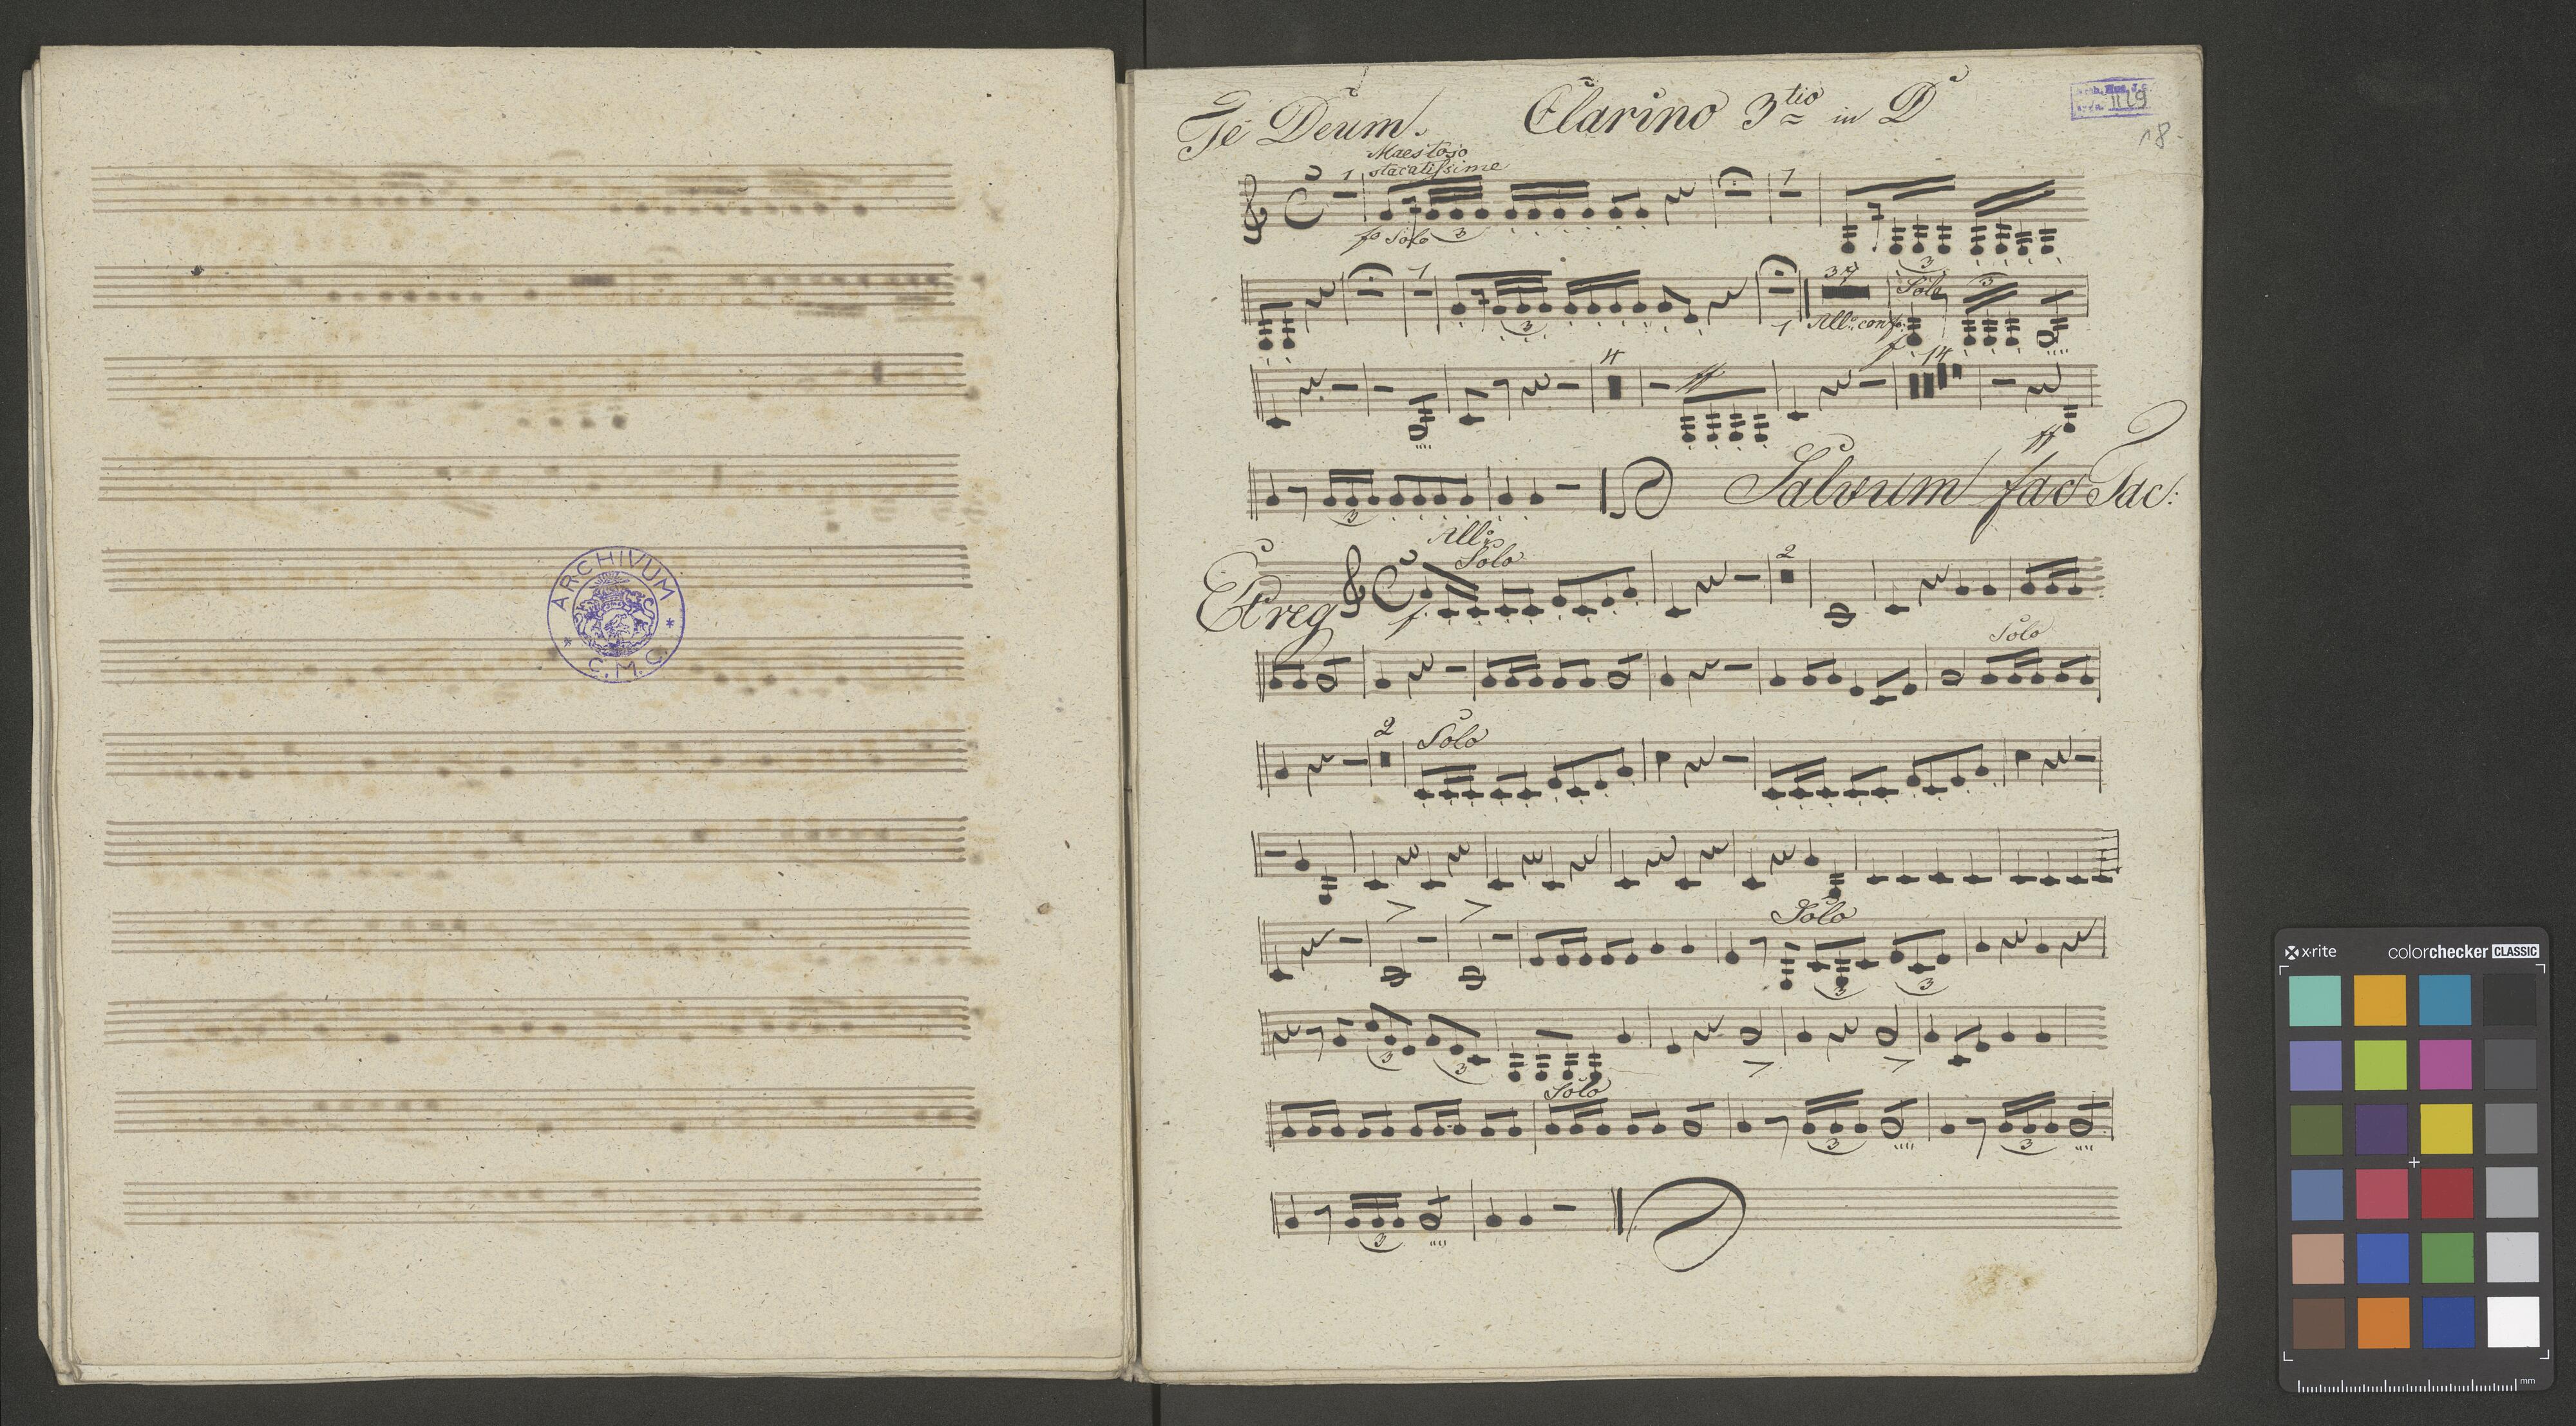 ARCHIVUM
* C.M.C. *
Te Deum. Clarino 3tio in D
II 19
18.
Maestoso
stacatissime
1
1
fo Solo 3
3
1
37
Solo 3
3
1 Allo: con fo:
f
4
ff
14
ff
3
Salvum fac Tac:
Allo:
Solo
2
Et reg
f.
Solo
2
Solo
> >
Solo
3 3
3 3
> >
Solo
3 3
3
x-rite colorchecker CLASSIC
mm